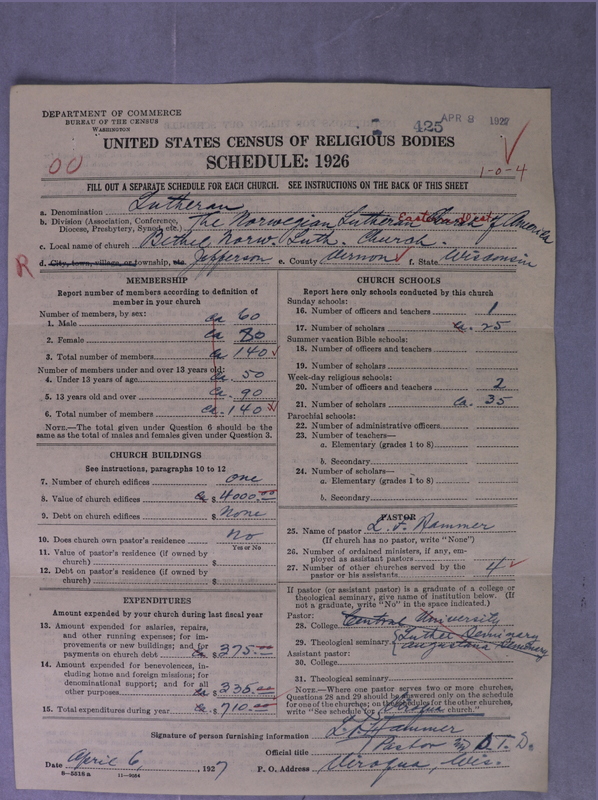 DEPARTMENT OF COMMERCE
BUREAU OF THE CENSUS
WASHINGTON
425
APR 8 1927
UNITED STATES CENSUS OF RELIGIOUS BODIES
SCHEDULE: 1926
00
1-0-4
FILL OUT A SEPARATE SCHEDULE FOR EACH CHURCH. SEE INSTRUCTIONS ON THE BACK OF THIS SHEET
a. Denomination Lutheran
b. Division (Association, Conference, Diocese, Presbytery, Synod, etc.) The Norwegian Lutheran Church of America
Eastern Dist.
c. Local name of church Bethel Norw. Luth. Church.
R
d. City, town, village, or township, etc. Jefferson e. County Vernon f. State Wisconsin
MEMBERSHIP
Report number of members according to definition of member in your church
Number of members, by sex:
1. Male ca 60
2. Female ca 80
3. Total number of members ca 140
Number of members under and over 13 years old:
4. Under 13 years of age ca. 50
5. 13 years old and over ca. 90
6. Total number of members ca. 140
NOTE.—The total given under Question 6 should be the same as the total of males and females given under Question 3.
CHURCH BUILDINGS
See instructions, paragraphs 10 to 12
7. Number of church edifices one
8. Value of church edifices ca $4000.00
9. Debt on church edifices $ None
10. Does church own pastor's residence? No
Yes or No
11. Value of pastor's residence (if owned by church) $
12. Debt on pastor's residence (if owned by church) $
EXPENDITURES
Amount expended by your church during last fiscal year
13. Amount expended for salaries, repairs, and other running expenses; for improvements or new buildings; and for payments on church debt ca $375.00
14. Amount expended for benevolences, including home and foreign missions; for denominational support; and for all other purposes ca $335.00
15. Total expenditures during year ca $710.00
CHURCH SCHOOLS
Report here only schools conducted by this church
Sunday schools:
16. Number of officers and teachers 1
17. Number of scholars ca. 25
Summer vacation Bible schools:
18. Number of officers and teachers
19. Number of scholars
Week-day religious schools:
20. Number of officers and teachers 2
21. Number of scholars ca. 35
Parochial schools:
22. Number of administrative officers
23. Number of teachers—
a. Elementary (grades 1 to 8)
b. Secondary
24. Number of scholars—
a. Elementary (grades 1 to 8)
b. Secondary
PASTOR
25. Name of pastor L. F. Hammer
(If church has no pastor, write "None")
26. Number of ordained ministers, if any, employed as assistant pastors
27. Number of other churches served by the pastor or his assistants 4
If pastor (or assistant pastor) is a graduate of a college or theological seminary, give name of institution below. (If not a graduate, write "No" in the space indicated.)
Pastor:
28. College Central University
29. Theological seminary Luther Seminary
Augustana Seminary
Assistant pastor:
30. College
31. Theological seminary
NOTE.—Where one pastor serves two or more churches, Questions 28 and 29 should be answered only on the schedule for one of the churches; on the schedules for the other churches, write "See schedule for Viroqua church."
Signature of person furnishing information L. F. Hammer
Official title Pastor
Date April 6, 1927 P. O. Address Viroqua, Wis.
8-5518 a 11-9084